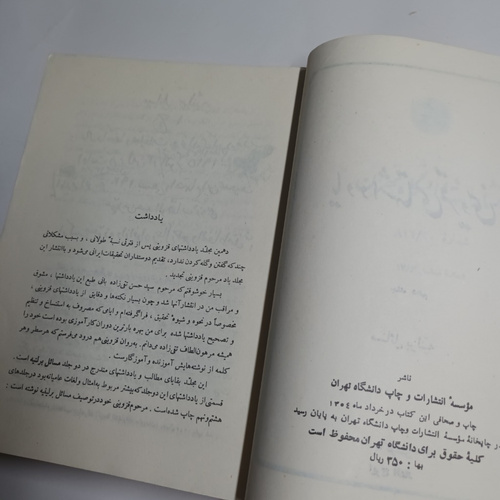 یادداشت
دهمین مجلّد یادداشتهای قزوینی پس از فترتی نسبةً طولانی ، و بسبب مشکلاتی
چند که گفتن و گله کردن ندارد، تقدیم دوستداران تحقیقات ایرانی می‌شود و با انتشار این
مجلد یاد مرحوم قزوینی تجدید .
بسیار خوشوقتم که مرحوم سید حسن تقی‌زاده بانی طبع این یادداشتها ، مشوق
و مراقب من در انتشار آنها شد و چون بسیار نکته‌ها و دقایق از یادداشتهای قزوینی ،
مخصوصاً در نحوه و شیوهٔ تحقیق ، فراگرفته‌ام و ایامی که مصروف به استنساخ و تنظیم
و تصحیح یادداشتها شده برای من پر بهره‌ترین دوران کارآموزی بوده است خود را
همیشه مرهون الطاف تقی‌زاده می‌دانم. به روان قزوینی هم درود می‌فرستم که هر سطر و هر
کلمه از نوشته‌هایش آموزنده و آموزگارست .
این مجلّد بقایای مطالب و یادداشتهای مندرج در دو جلد مسائل برلنیه است .
قسمتی از یادداشتهای این دو جلد که بیشتر مربوط به امثال و لغات عامیانه بود در جلدهای
هشتم و نهم چاپ شده‌است . مرحوم قزوینی خود در توصیف مسائل برلنیه نوشته است :
ناشر
مؤسسهٔ انتشارات و چاپ دانشگاه تهران
چاپ و صحافی این کتاب در خرداد ماه ۱۳۵۴
در چاپخانهٔ مؤسسهٔ انتشارات و چاپ دانشگاه تهران به پایان رسید
کلیهٔ حقوق برای دانشگاه تهران محفوظ است
بها : ۳۵۰ ریال